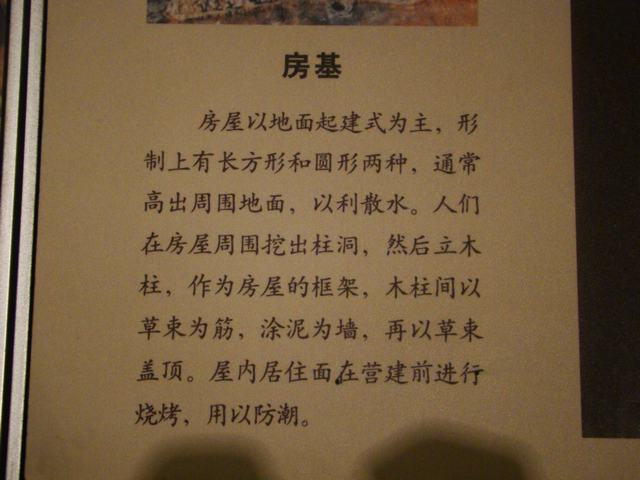 房基
房屋以地面起建式为主，形
制上有长方形和圆形两种，通常
高出周围地面，以利散水。人们
在房屋周围挖出柱洞，然后立木
柱，作为房屋的框架，木柱间以
草束为筋，涂泥为墙，再以草束
盖顶。屋内居住面在营建前进行
烧烤，用以防潮。